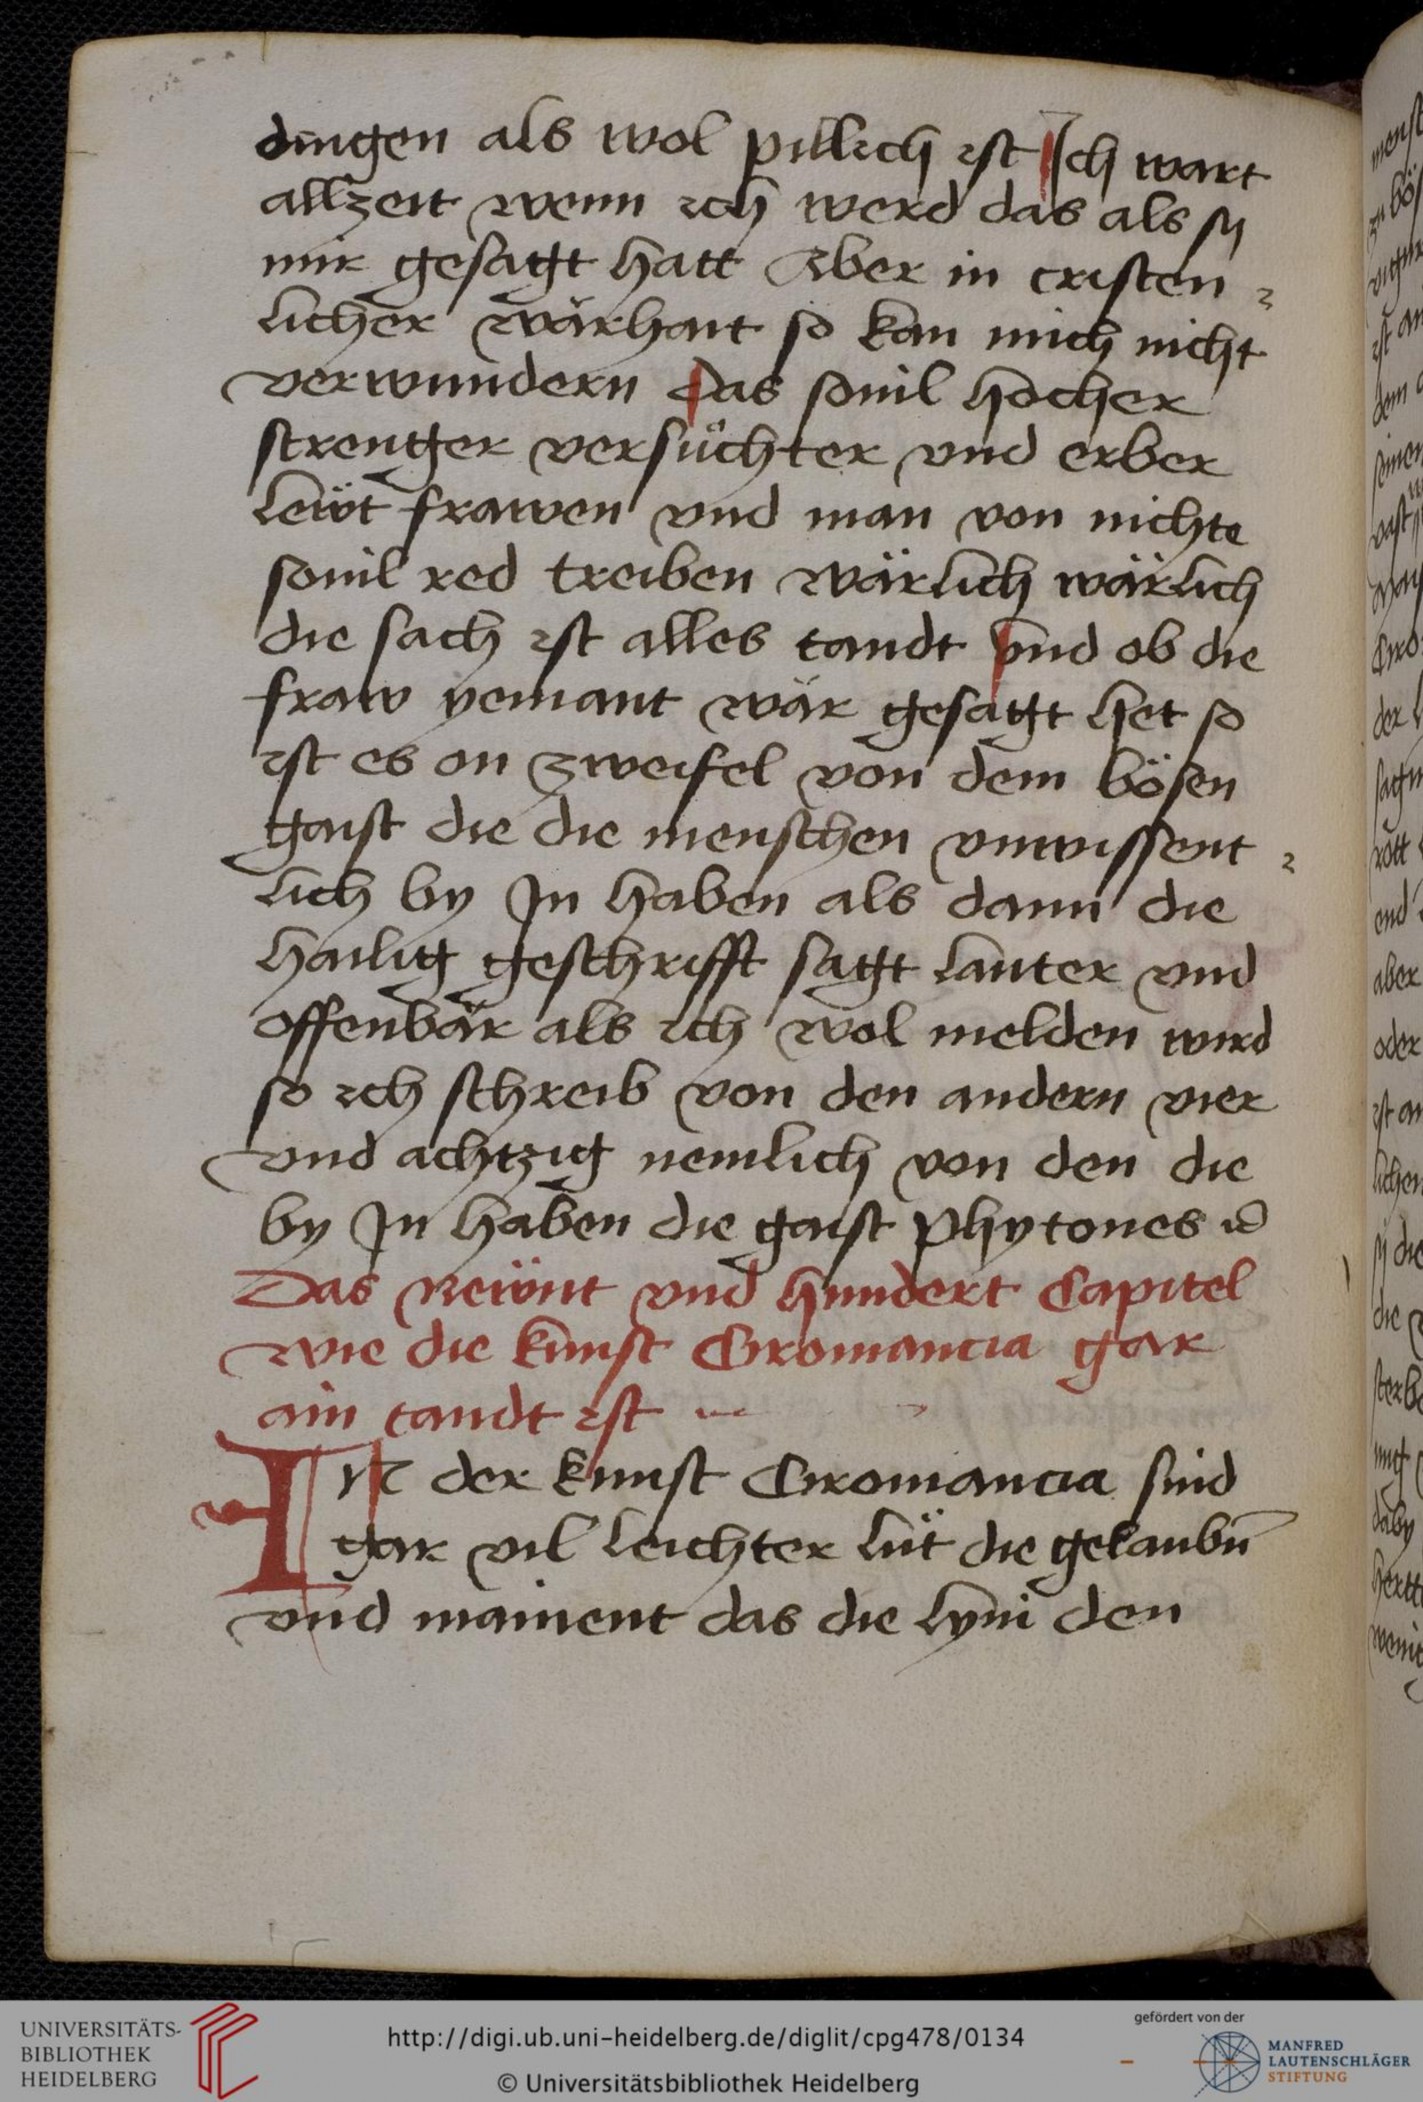 dingen als wol pillich ist Ich wart
allzeit wenn ich werd das als sy
mir gesagt hatt Aber in cristen
licher wärhait so kan mich nicht
verwundern das souil hocher
strenger versuͦchter vnd erber
lewt frawen vnd man von nichte
souil red treiben wärlich wärlich
die sach ist alles tandt vnd ob die
fraw yemant wär gesagt het so
ist es on zweifel von dem bösen
gaist die die menschen vnwissent
lich by In haben als dann die
hailig geschrifft sagt lauter vnd
offenbär als ich wol melden wird
so ich schreib von den andern vier
vnd achtzig nemlich von den die
by In haben die gaist phytones
Das Newnt vnd hundert Capitel
wie die kunst Ciromancia gar
ain tandt ist
IN der kunst Ciromancia sind
gar vil leichter lüt die gelaubn̄
vnd mainent das die lyni den
menst
zu bös
ist an
dem
seinen
vast
Ciro
der
sagn
rott
end
aber
oder
ist an
lichen
sy die
die
sterbe
ung
daby
hertt
wenig
UNIVERSITÄTS-
BIBLIOTHEK
HEIDELBERG
http://digi.ub.uni-heidelberg.de/diglit/cpg478/0134
© Universitätsbibliothek Heidelberg
gefördert von der
MANFRED
LAUTENSCHLÄGER
STIFTUNG